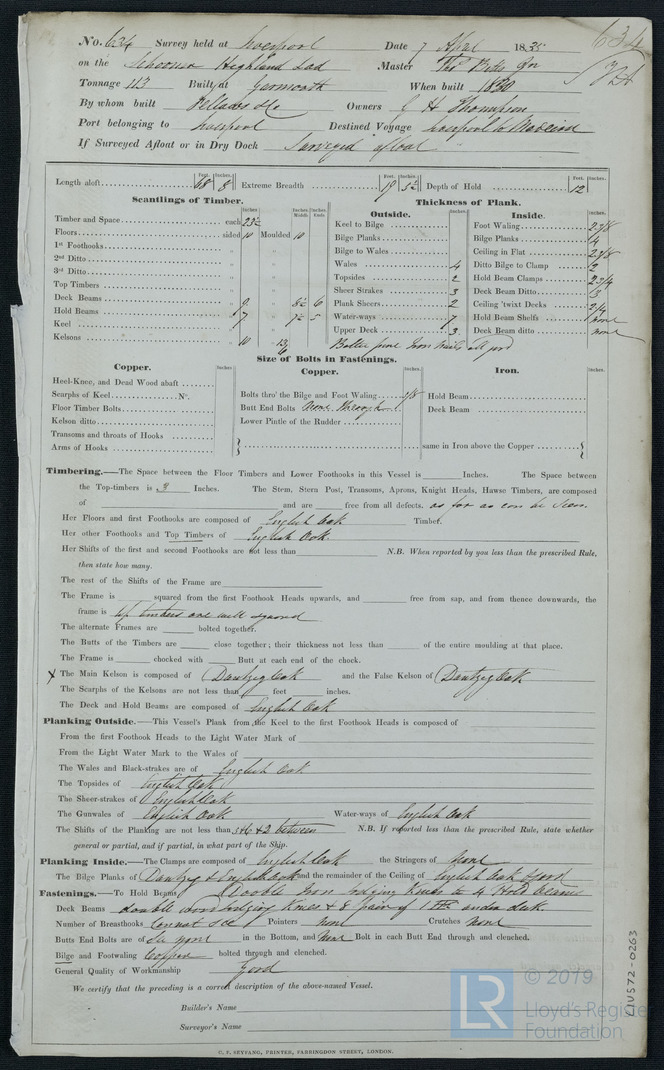 No. 634 Survey held at Liverpool Date 7 April 1835 634
on the Schooner Highland Lad Master Thos
Tonnage 113 Built at Yarmouth When built 1830
By whom built Owners H Thompson
Port belonging to Liverpool Destined Voyage Liverpool to
If Surveyed Afloat or in Dry Dock Surveyed afloat
Feet. Inches. Feet. Inches. Feet. Inches.
Length aloft 68 8 Extreme Breadth 19 Depth of Hold 12
Scantlings of Timber.
Inches. Inches Middle Inches Ends
Timber and Space each
Floors sided 10 Moulded 10
1st Foothooks " "
2nd Ditto " "
3rd Ditto " "
Top Timbers " "
Deck Beams " 9 " 6
Hold Beams " 7 " 5
Keel
Kelsons 10
Thickness of Plank.
Outside. Inches
Keel to Bilge
Bilge Planks
Bilge to Wales
Wales 4
Topsides 2
Sheer Strakes 3
Plank Sheers 2
Water-ways 7
Upper Deck 3
Inside. Inches.
Foot Waling
Bilge Planks 4
Ceiling in Flat
Ditto Bilge to Clamp 2
Hold Beam Clamps 2 3/4
Deck Beam Ditto 3
Ceiling 'twixt Decks
Hold Beam Shelfs none
Deck Beam ditto none
Size of Bolts in Fastenings.
Copper. Inches
Heel-Knee, and Dead Wood abaft
Scarphs of Keel No.
Floor Timber Bolts
Kelson ditto
Transoms and throats of Hooks
Arms of Hooks
Copper. Inches
Bolts thro' the Bilge and Foot Waling
Butt End Bolts none through
Lower Pintle of the Rudder
Iron. Inches.
Hold Beam
Deck Beam
same in Iron above the Copper
Timbering.—The Space between the Floor Timbers and Lower Foothooks in this Vessel is Inches. The Space between
the Top-timbers is Inches. The Stem, Stern Post, Transoms, Aprons, Knight Heads, Hawse Timbers, are composed
of and are free from all defects. as far as can be seen.
Her Floors and first Foothooks are composed of English Oak Timber.
Her other Foothooks and Top Timbers of English Oak.
Her Shifts of the first and second Foothooks are not less than N.B. When reported by you less than the prescribed Rule,
then state how many.
The rest of the Shifts of the Frame are
The Frame is squared from the first Foothook Heads upwards, and free from sap, and from thence downwards, the
frame is top timbers are well squared
The alternate Frames are bolted together.
The Butts of the Timbers are close together; their thickness not less than of the entire moulding at that place.
The Frame is chocked with Butt at each end of the chock.
x The Main Kelson is composed of Dantzig Oak and the False Kelson of Dantzig Oak
The Scarphs of the Kelsons are not less than feet inches.
The Deck and Hold Beams are composed of English Oak
Planking Outside.—This Vessel's Plank from the Keel to the first Foothook Heads is composed of
From the first Foothook Heads to the Light Water Mark of
From the Light Water Mark to the Wales of
The Wales and Black-strakes are of English Oak
The Topsides of English Oak
The Sheer-strakes of English Oak
The Gunwales of English Oak Water-ways of English Oak
The Shifts of the Planking are not less than 5 & 6 & 2 between N.B. If reported less than the prescribed Rule, state whether
general or partial, and if partial, in what part of the Ship.
Planking Inside.—The Clamps are composed of English Oak the Stringers of None
The Bilge Planks of Dantzig & English Oak and the remainder of the Ceiling of English Oak
Fastenings.—To Hold Beams Double Iron hanging Knees to 4 Hold beams
Deck Beams double iron lodging Knees & 8 pair of under deck.
Number of Breasthooks cannot see Pointers none Crutches None
Butts End Bolts are of in the Bottom, and Bolt in each Butt End through and clenched.
Bilge and Footwaling Copper bolted through and clenched.
General Quality of Workmanship Good
We certify that the preceding is a correct description of the above-named Vessel.
Builder's Name
Surveyor's Name
C. F. SEYFANG, PRINTER, FARRINGDON STREET, LONDON.
LIV572-0263
© 2019
LR
Lloyd's Register
Foundation